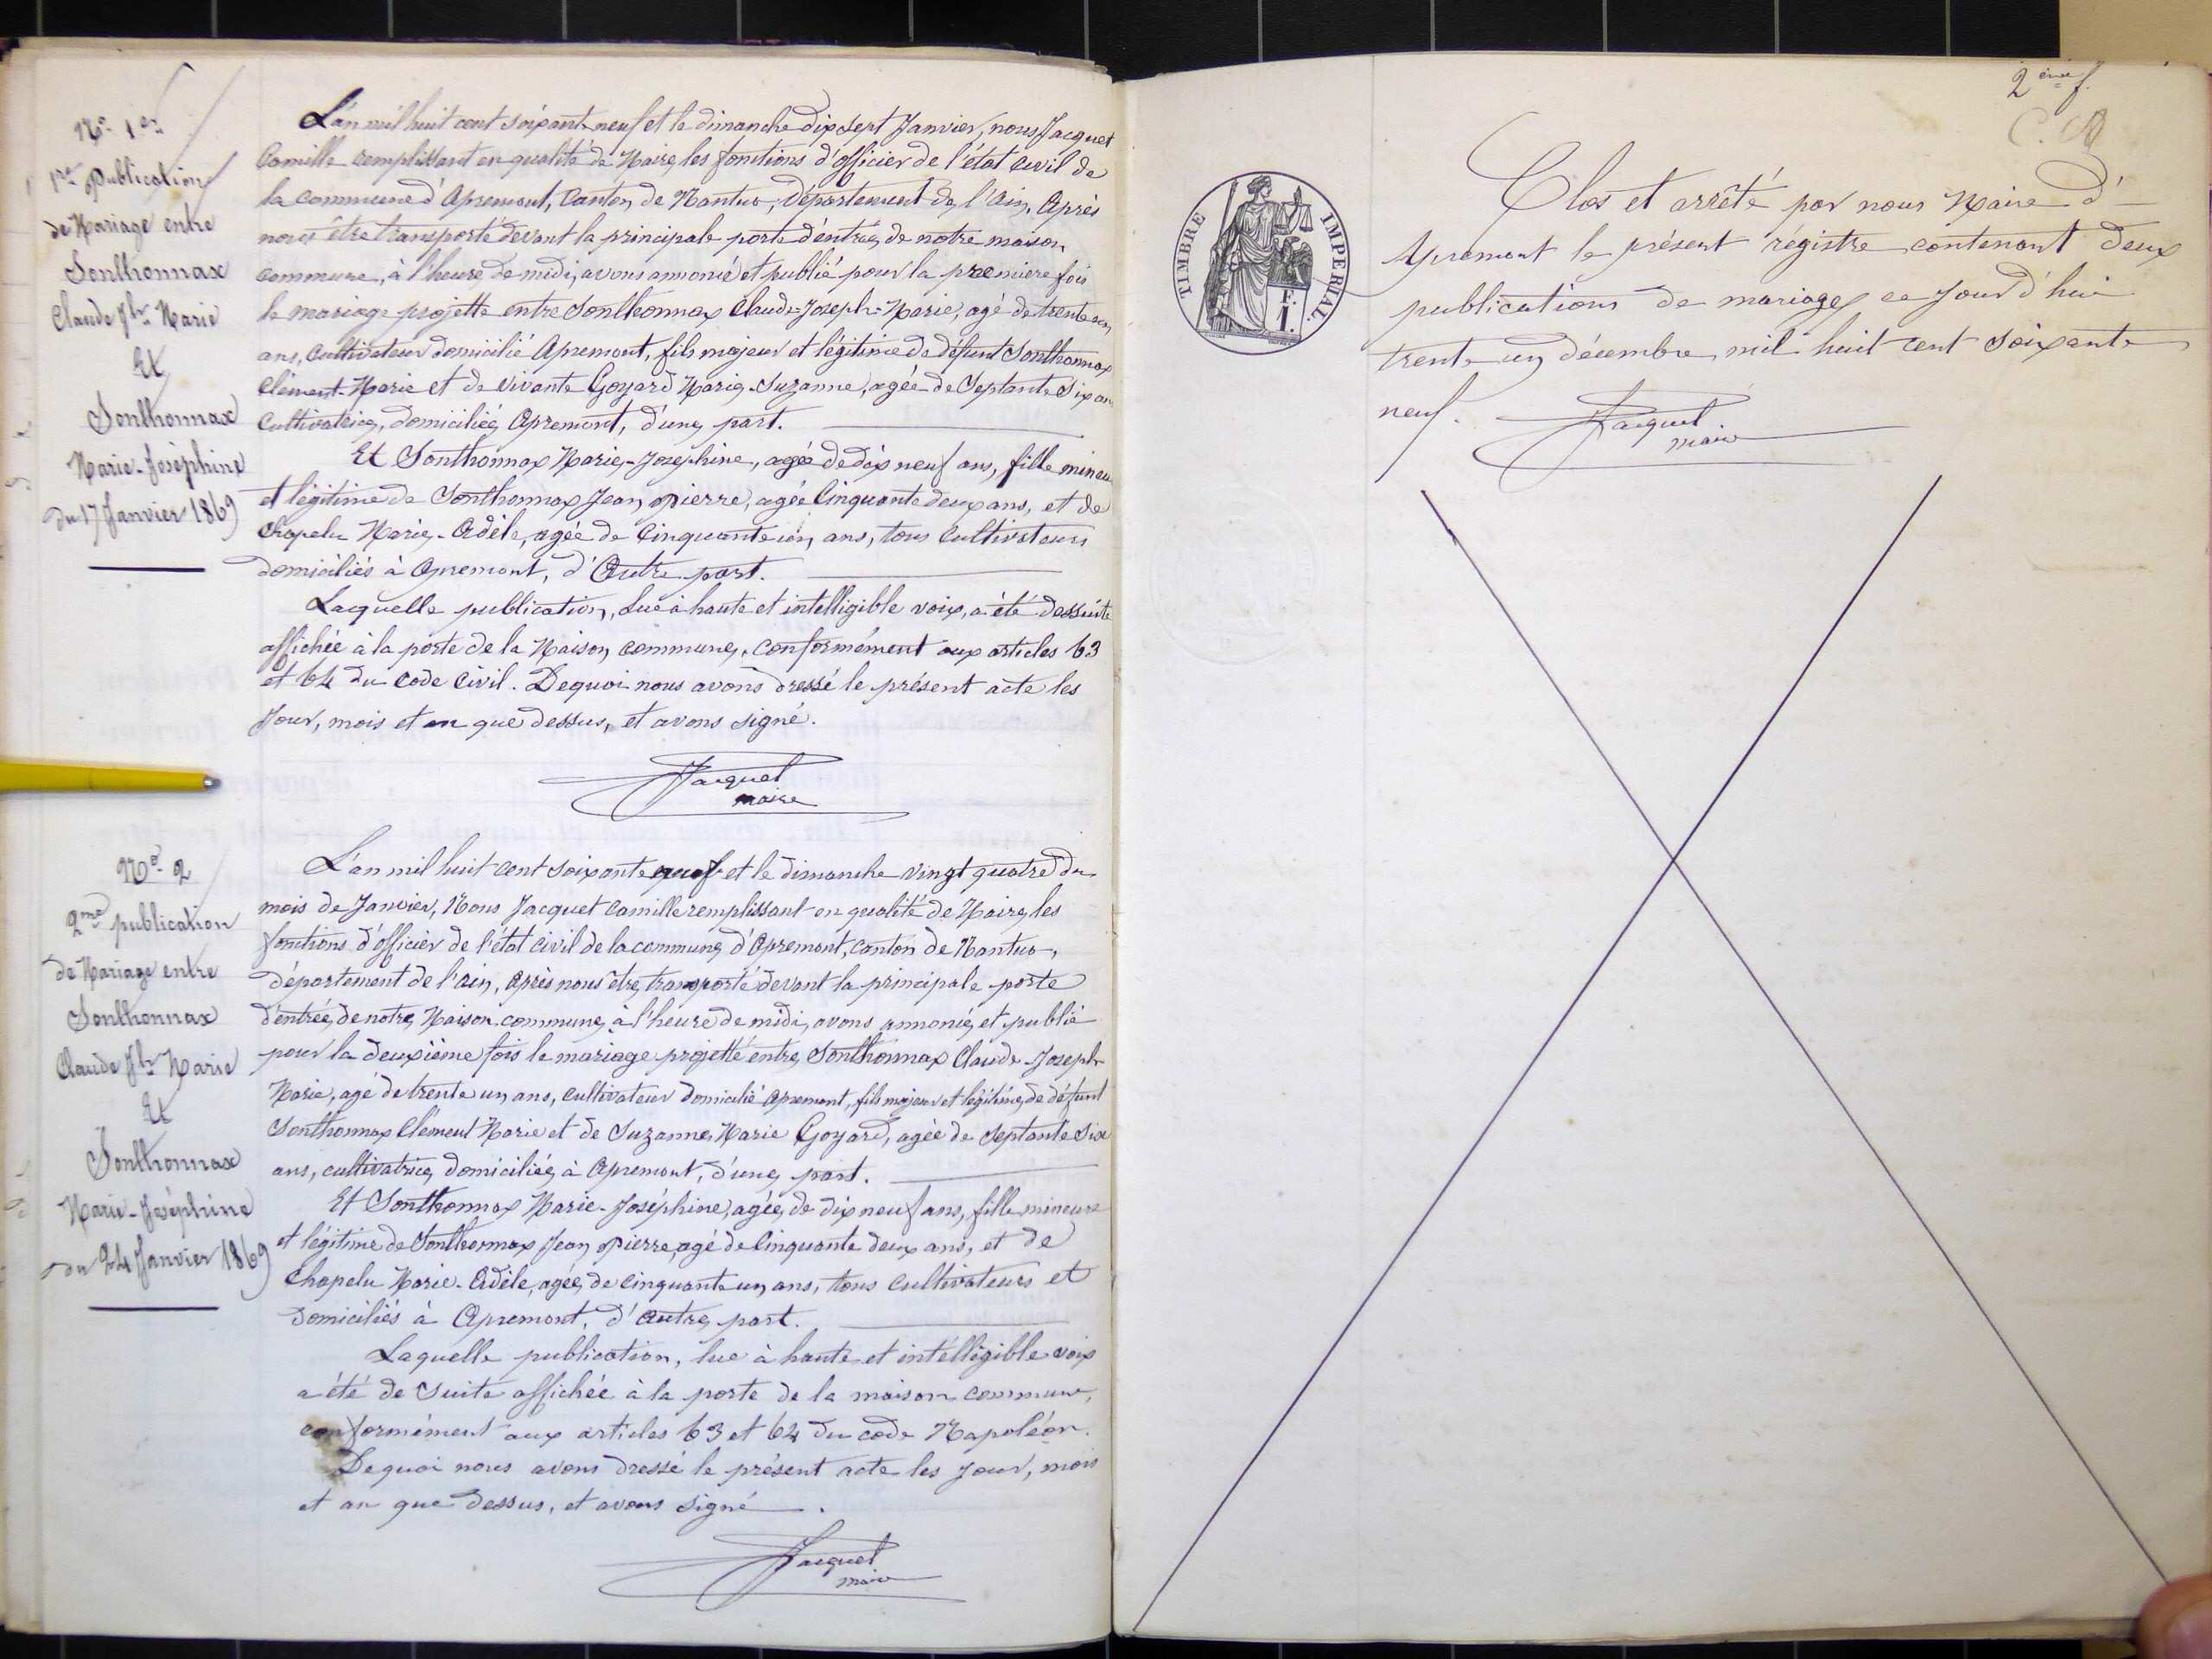 No 1er
1re Publication
de Mariage entre
Sonthonnax
Claude Jh Marie
Et
Sonthonnax
Marie-Joséphine
du 17 Janvier 1869
L'an mil huit cent soixante neuf et le dimanche dix sept Janvier, nous Jacquet
Camille remplissant en qualité de Maire, les fonctions d'officier de l'état civil de
la commune d'Apremont, Canton de Nantua, Département de l'Ain, Après
nous être transporté devant la principale porte d'entrée de notre maison
commune, à l'heure de midi, avons annoncé et publié pour la premiere fois
le mariage projetté entre Sonthonnax Claude-Joseph-Marie, agé de trente un
ans, Cultivateur domicilié Apremont, fils majeur et légitime de défunt Sonthonnax
Clément-Marie et de vivante Goyard Marie-Suzanne, agée de Septante Six ans
Cultivatrice, domiciliée Apremont, d'une part.
Et Sonthonnax Marie-Josephine, agée de dix neuf ans, fille mineu
et légitime de Sonthonnax Jean pierre, agée Cinquante deux ans, et de
Chapelu Marie-Adèle, agée de Cinquante un ans, tous Cultivateurs
domiciliés à Apremont, d'Autre part.
Laquelle publication, Lue à haute et intelligible voix, a été dessuite
affichée à la porte de la Maison commune, conformément aux articles 63
et 64 du Code Civil. Dequoi nous avons dressé le présent acte les
Jour, mois et an que dessus, et avons signé.
Jacquet
maire
No 2
2me publication
de Mariage entre
Sonthonnax
Claude Jh Marie
Et
Sonthonnax
Marie-Joséphine
du 24 Janvier 1869
L'an mil huit cent soixante neuf et le dimanche vingt quatre du
mois de Janvier, Nous Jacquet Camille remplissant en qualité de Maire, les
fonctions d'officier de l'état civil de la commune d'Apremont, canton de Nantua,
département de l'ain, Après nous être transporté devant la principale porte
d'entrée de notre Maison commune, à l'heure de midi, avons annoncé et publié
pour la deuxième fois le mariage projetté entre Sonthonnax Claude-Joseph
Marie, agé de trente un ans, cultivateur domicilié Apremont, fils majeur et légitime de défunt
Sonthonnax Clément Marie et de Suzanne Marie Goyard, agée de Septante Six
ans, cultivatrice, domiciliée à Apremont, d'une part.
Et Sonthonnax Marie-Joséphine, agée de dix neuf ans, fille mineure
et légitime de Sonthonnax Jean pierre, agé de Cinquante deux ans, et de
Chapelu Marie-Adèle, agée de cinquante un ans, tous cultivateurs et
domiciliés à Apremont, d'Autre part.
Laquelle publication, lue à haute et intélligible voix
a été de Suite affichée à la porte de la maison commune,
conformément aux articles 63 et 64 du code Napoléon.
Dequoi nous avons dressé le présent acte les jour, mois
et an que dessus, et avons signé.
Jacquet
maire
2ème f.
TIMBRE IMPERIAL
F.
1.
Clos et arrêté par nous Maire d'
Apremont le présent régistre contenant deux
publications de mariage ce jour d'hui
trente un décembre mil huit cent soixante
neuf.
Jacquet
maire